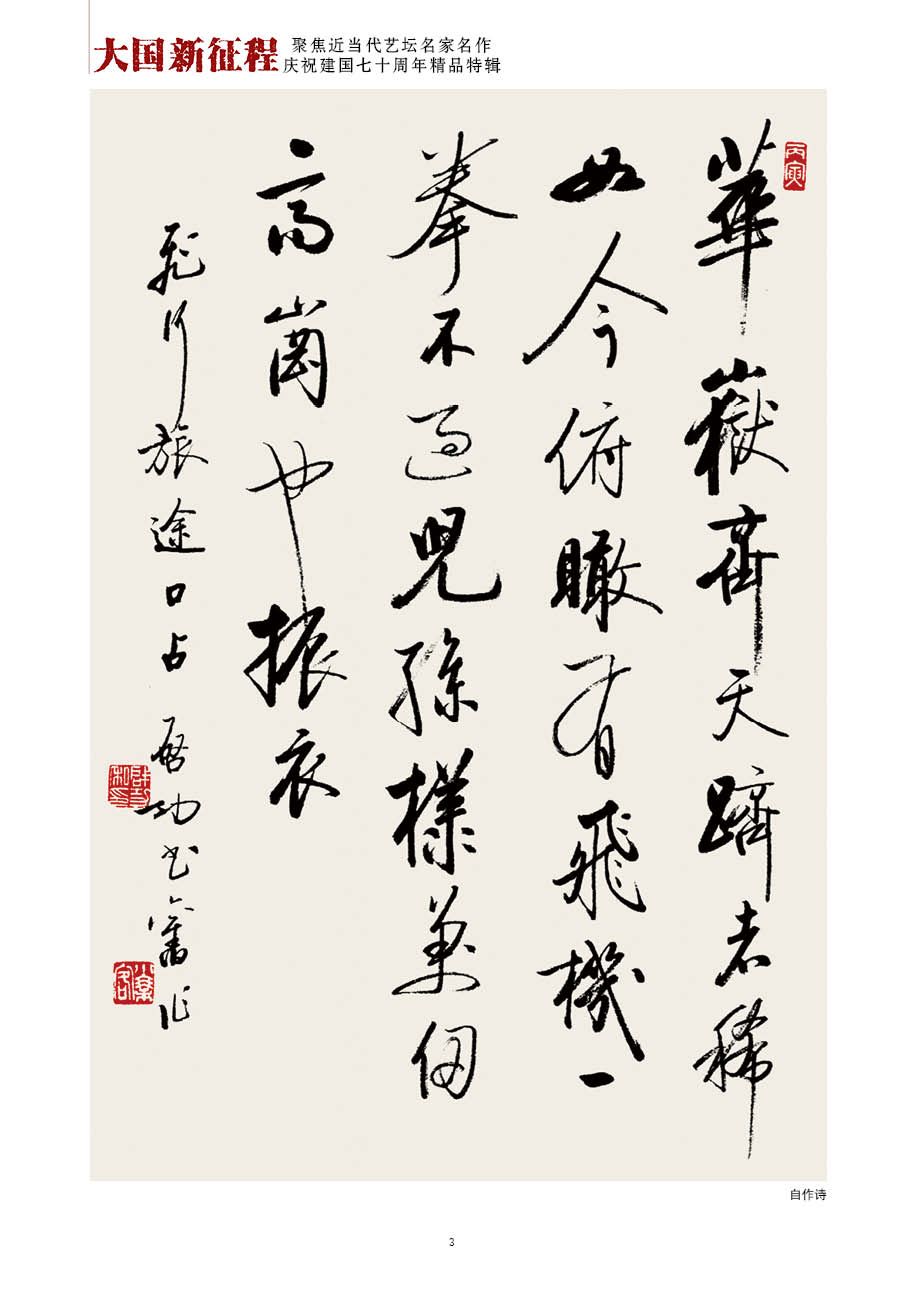 大国新征程
聚焦近当代艺坛名家名作
庆祝建国七十周年精品特辑
丙寅
華嶽齊天躋者稀
如今俯瞰有飛機一
拳不過兒孫樣萬仞
高崗也振衣
飛行旅途口占 啓功书舊作
啓功私印
小乘客
自作诗
3